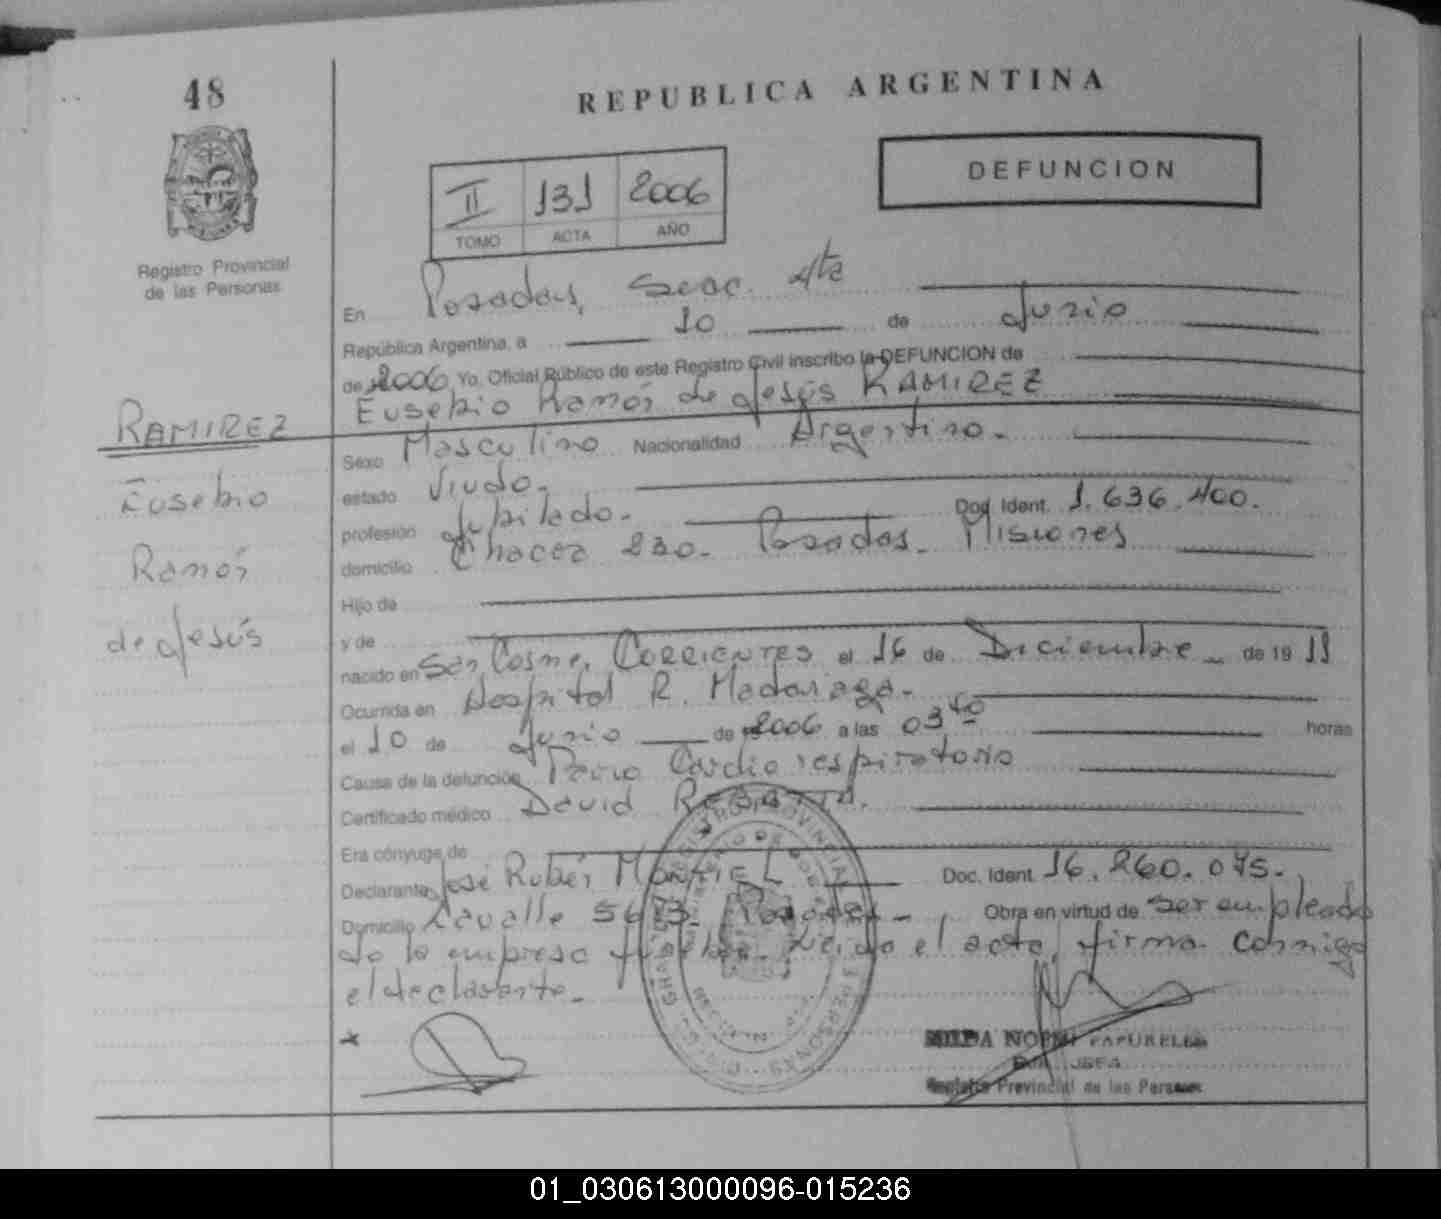 48
REPUBLICA ARGENTINA
DEFUNCION
II 131 2006
TOMO ACTA AÑO
Registro Provincial
de las Personas
En Posadas, Secc. 4ta
República Argentina, a 10 de Junio
de 2006 Yo, Oficial Público de este Registro Civil inscribo la DEFUNCION de
Eusebio Ramón de Jesús RAMIREZ
RAMIREZ
Eusebio
Ramón
de Jesús
Sexo Masculino Nacionalidad Argentino.
estado Viudo.
profesión Jubilado. Doc. Ident. 1.636.400.
domicilio Chacra 230. Posadas. Misiones
Hijo de
y de
nacido en San Cosme, CORRIENTES el 16 de Diciembre de 19 11
Ocurrida en Hospital R. Madariaga.
el 10 de Junio de 2006 a las 03 40 horas
Causa de la defunción Paro Cardio respiratorio
Certificado médico David
Era cónyuge de
Declarante José Rubén MONTIEL Doc. Ident. 16.260.075.
Domicilio Lavalle Posadas. Obra en virtud de ser empleado
de la empresa fúnebre. Leída el acta, firma conmigo
el declarante.
REGISTRO PROVINCIAL DE LAS PERSONAS
NOEMI
Registro Provincial de las Personas
01_030613000096-015236